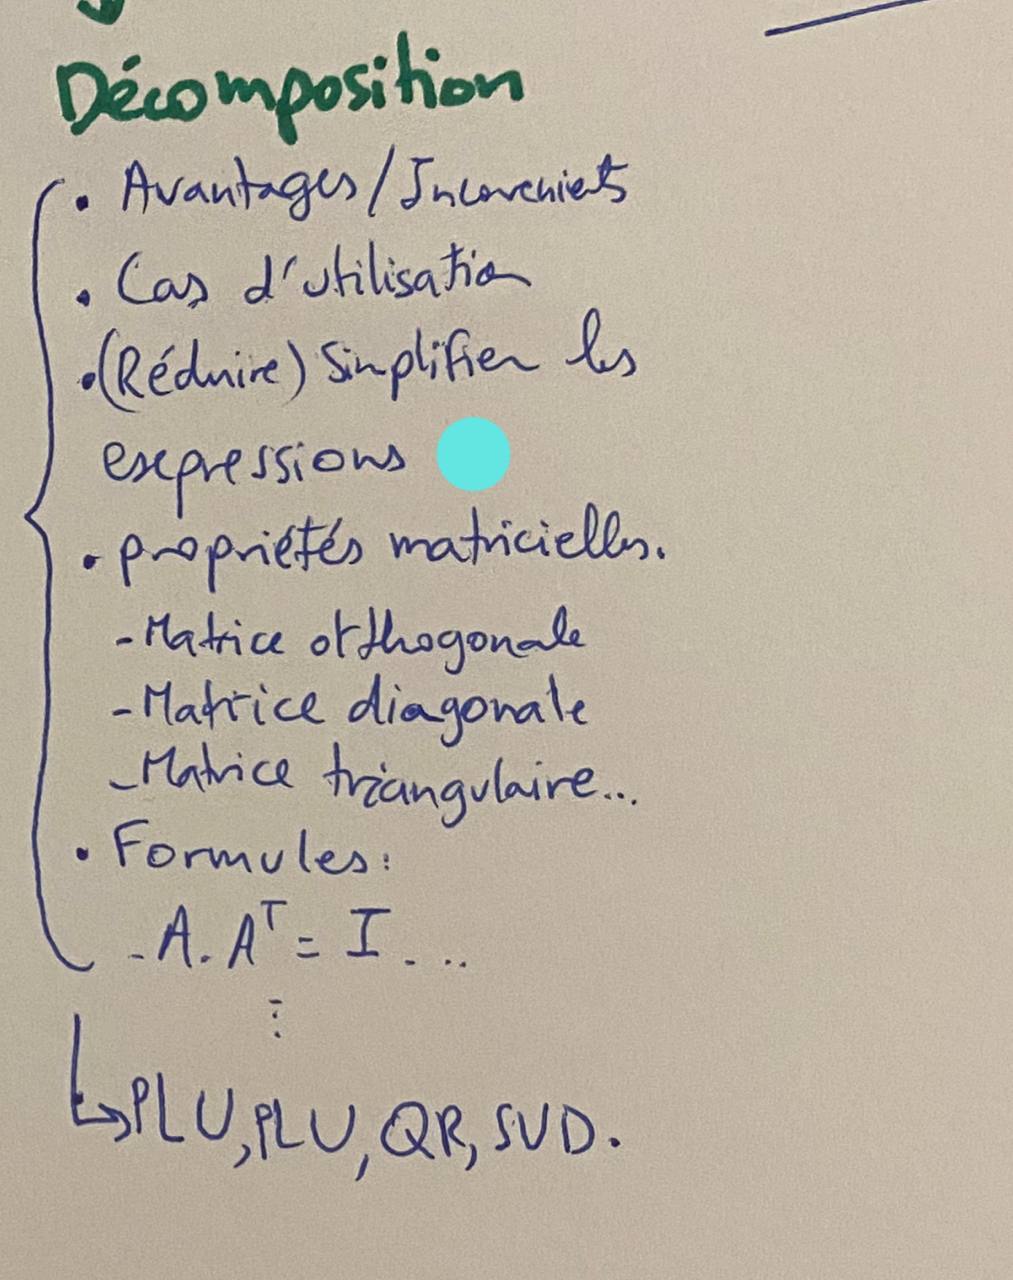 Décomposition
• Avantages/Inconvenients
• Cas d'utilisation
• (Réduire) Simplifier les
expressions
• propriétés matricielles.
- Matrice orthogonale
- Matrice diagonale
- Matrice triangulaire...
• Formules:
- A. Aᵀ = I ...
⋮
↳ PLU, PLU, QR, SVD.